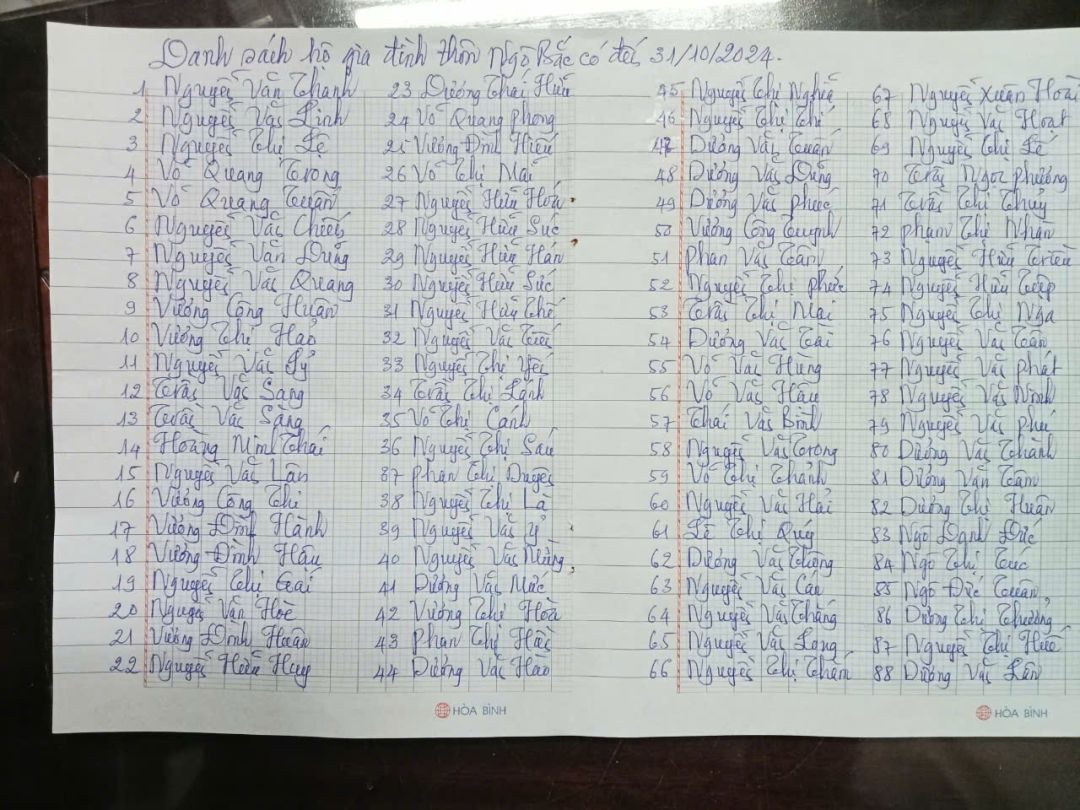 Danh sách hộ gia đình thôn Ngõ Bắc có đến 31/10/2024.
1 Nguyễn Văn Thành
2 Nguyễn Văn Linh
3 Nguyễn Thị Lệ
4 Võ Quang Trọng
5 Võ Quang Tuấn
6 Nguyễn Văn Chiến
7 Nguyễn Văn Dũng
8 Nguyễn Văn Quang
9 Vương Công Huân
10 Vương Thị Hảo
11 Nguyễn Văn Lý
12 Trần Văn Sang
13 Trần Văn Sáng
14 Hoàng Minh Thái
15 Nguyễn Văn Lân
16 Vương Công Thi
17 Vương Đình Hành
18 Vương Đình Hậu
19 Nguyễn Thị
20 Nguyễn Văn Học
21 Vương Đình Hoàn
22 Nguyễn Hữu Huy
23 Dương Thái Hữu
24 Võ Quang Phong
25 Vương Đình Hiếu
26 Võ Thị Mai
27 Nguyễn Hữu Hóa
28 Nguyễn Hữu Súc
29 Nguyễn Hữu Hán
30 Nguyễn Hữu Sức
31 Nguyễn Hữu Thế
32 Nguyễn Văn Tiến
33 Nguyễn Thị Yến
34 Trần Thị Lành
35 Võ Thị Cánh
36 Nguyễn Thị Sáu
37 Phan Thị Duyên
38 Nguyễn Thị Là
39 Nguyễn Văn Ý
40 Nguyễn Văn Hùng
41 Dương Văn Mác
42 Vương Thị Hòa
43 Phan Thị Hải
44 Dương Văn Hào
45 Nguyễn Thị Nghĩa
46 Nguyễn Thị Thế
47 Dương Văn Tuấn
48 Dương Văn Dũng
49 Dương Văn Phúc
50 Vương Công Quỳnh
51 Phan Văn Tân
52 Nguyễn Thị Phước
53 Trần Thị Mai
54 Dương Văn Tài
55 Võ Văn Hùng
56 Võ Văn Hậu
57 Thái Văn Bình
58 Nguyễn Văn Trọng
59 Võ Thị Thảnh
60 Nguyễn Văn Hải
61 Lê Thị Quý
62 Dương Văn Thông
63 Nguyễn Văn Cầu
64 Nguyễn Văn Thắng
65 Nguyễn Văn Long
66 Nguyễn Thị Thắm
67 Nguyễn Xuân Hoài
68 Nguyễn Văn Hoạt
69 Nguyễn Thị Lê
70 Trần Ngọc Phương
71 Trần Thị Thủy
72 Phạm Thị Nhân
73 Nguyễn Hữu Triều
74 Nguyễn Hữu Tiệp
75 Nguyễn Thị Nga
76 Nguyễn Văn Tân
77 Nguyễn Văn Phát
78 Nguyễn Văn Ninh
79 Nguyễn Văn Phú
80 Dương Văn Thành
81 Dương Văn Tâm
82 Dương Thị Huân
83 Ngô Danh Đức
84 Ngô Thị Cúc
85 Ngô Đức Tuân
86 Dương Thị Thương
87 Nguyễn Thị Huế
88 Dương Văn Lân
HÒA BÌNH
HÒA BÌNH